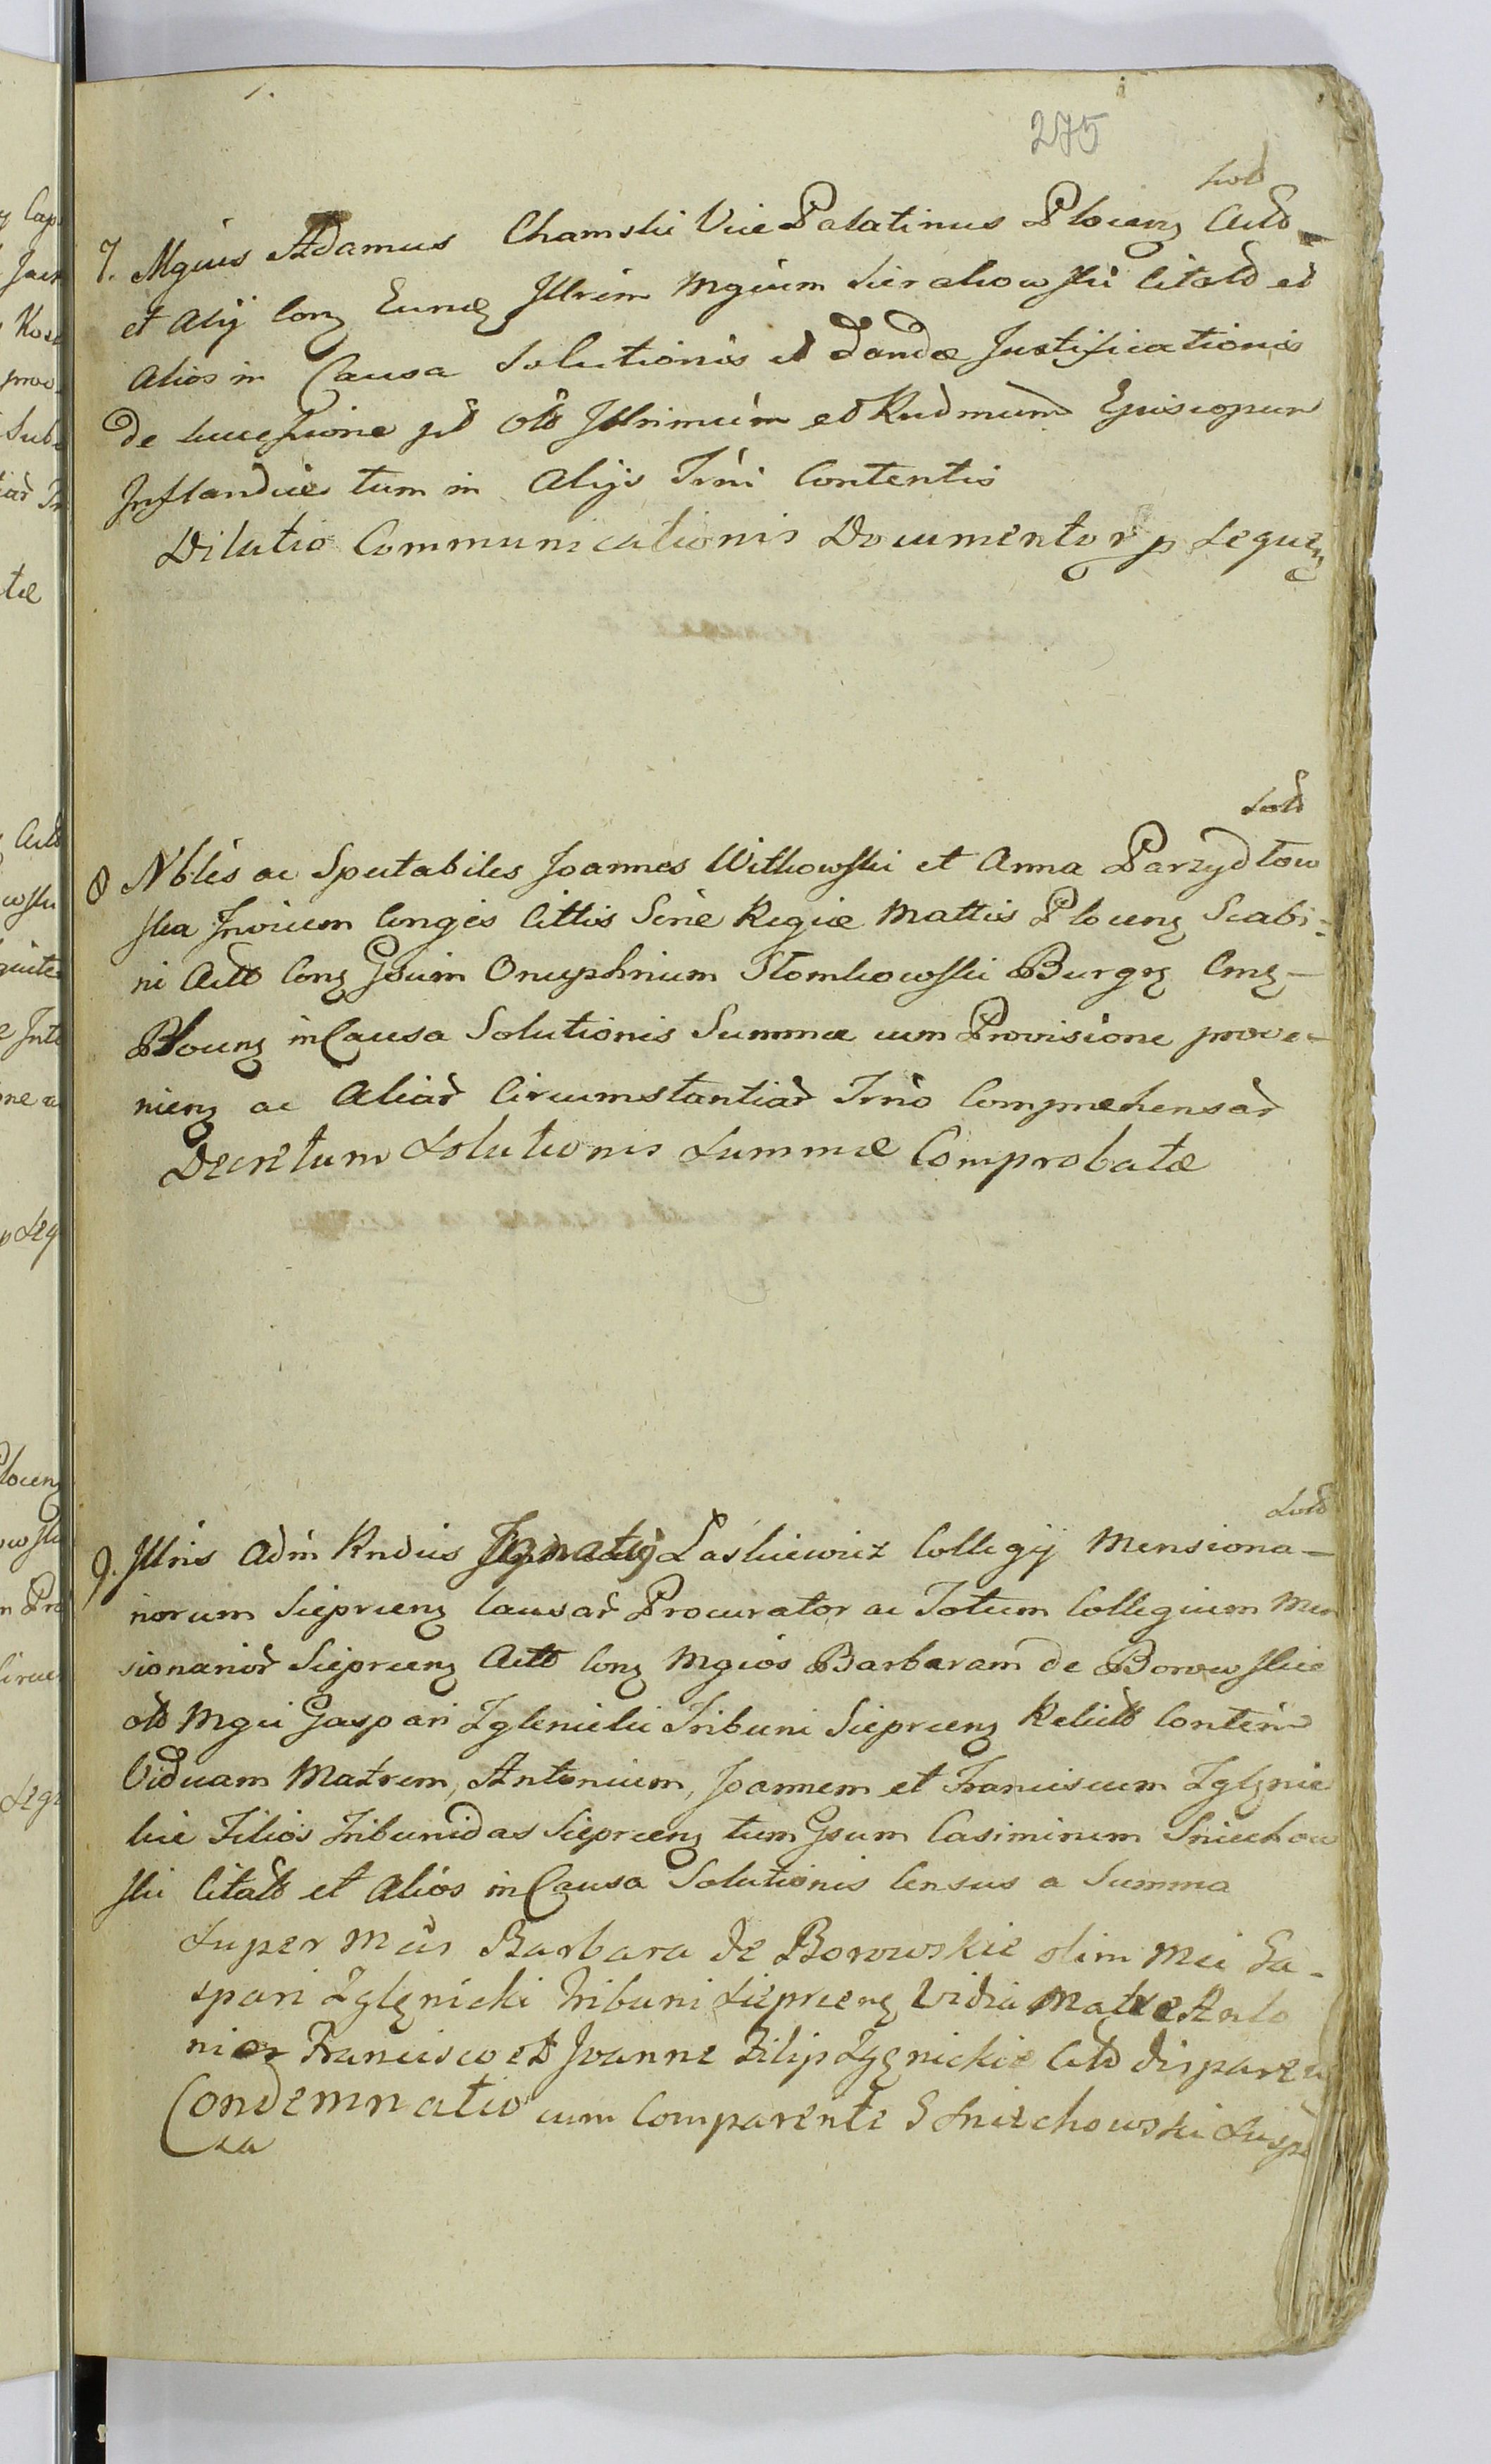 275
Solt
7. Mgius Adamus Chamski Vice Palatinus Plocenz Actt
et Alij Conz Eund Illrim Mgium Sierakowski Citatt et
Alios in Causa Solutionis et Dandæ Justificationis
de Successione pt olt Illrimum et Rndmum Episcopum
Inflandiæ tum in Alijs Trmi Contentis
Dilatio Communicationis Documentor p Sequenz
Solt
8 Nbles ac Spectabiles Joannes Witkowski et Anna Parzydłow
ska Invicem Conges Cittis Serie Regiæ Mattis Plocenz Scabi-
ni Actt Conz Gsum Onuphrium Słomkowski Burgz Cmz
Plocenz in Causa Solutionis Summæ cum Provisione prove-
nienz ac Aliar Circumstantiar Trno Compræhensar
Decretum Solutionis Summæ Comprobatæ
Solt
9. Illris Adm Rndus Ignatij Laskiewicz Collegij Mensiona-
norum Sieprcenz Causar Procurator ac Totum Collegium Men
sionarior Sieprcenz Actt Conz Mgios Barbaram de Borowskie
olt Mgii Gaspari Zglenicki Tribuni Sieprcenz Relict Contem
Viduam Matrem, Antonium, Joannem et Franciscum Zglenic
kie Filios Tribunidas Sieprcenz tum Gsum Casimirum Sniechow
ski Citatt et Alios in Causa Solutionis Census a Summa
Super Mcis Barbara de Borowskie olim Mci Ga-
spari Zglęnicki Tribuni Sieprcenz Vidia Matre Anto
nio Francisco et Joanne Filijs Zglęnickie Citt disparen
Condemnatio cum Comparente G Sniechowski Suspen
sa